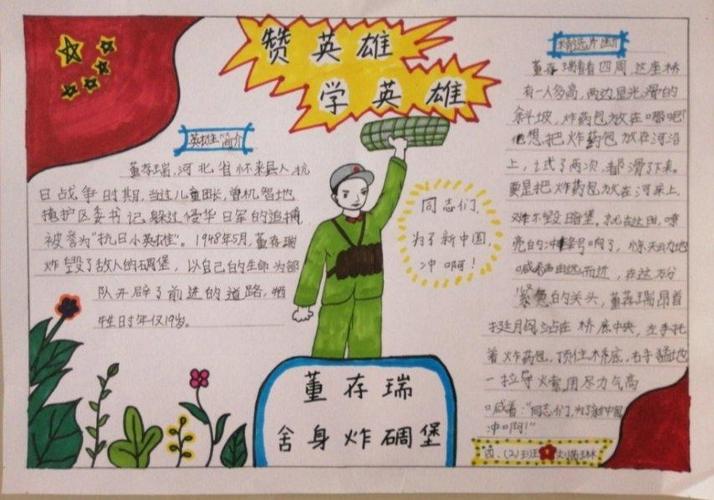 赞英雄
学英雄
英雄简介
董存瑞,河北省怀来县人,抗
日战争时期,当过儿童团长,曾机智地
掩护区委书记躲过侵华日军的追捕
被誉为“抗日小英雄”。1948年5月,董存瑞
炸毁了敌人的碉堡,以自己的生命为部
队开辟了前进的道路,牺
牲时年仅19岁。
同志们,
为了新中国,
冲啊!
董存瑞
舍身炸碉堡
精选片段
董存瑞看看四周,这座桥
有一人多高,两边是光滑的
斜坡,炸药包放在哪吧
他想把炸药包放在河沿
上,试了两次,都滑了下来。
要是把炸药包放在河床上,
难不毁暗堡。就在这时,嘹
亮的冲锋号响了,惊天动地
喊声由远而近,在这万分
紧急的关头,董存瑞昂首
挺胸站在桥底中央,左手托
着炸药包,顶住桥底,右手猛地
一拉导火索,用尽力气高
喊着:“同志们,为了新中国
冲啊!”
四.(2)班